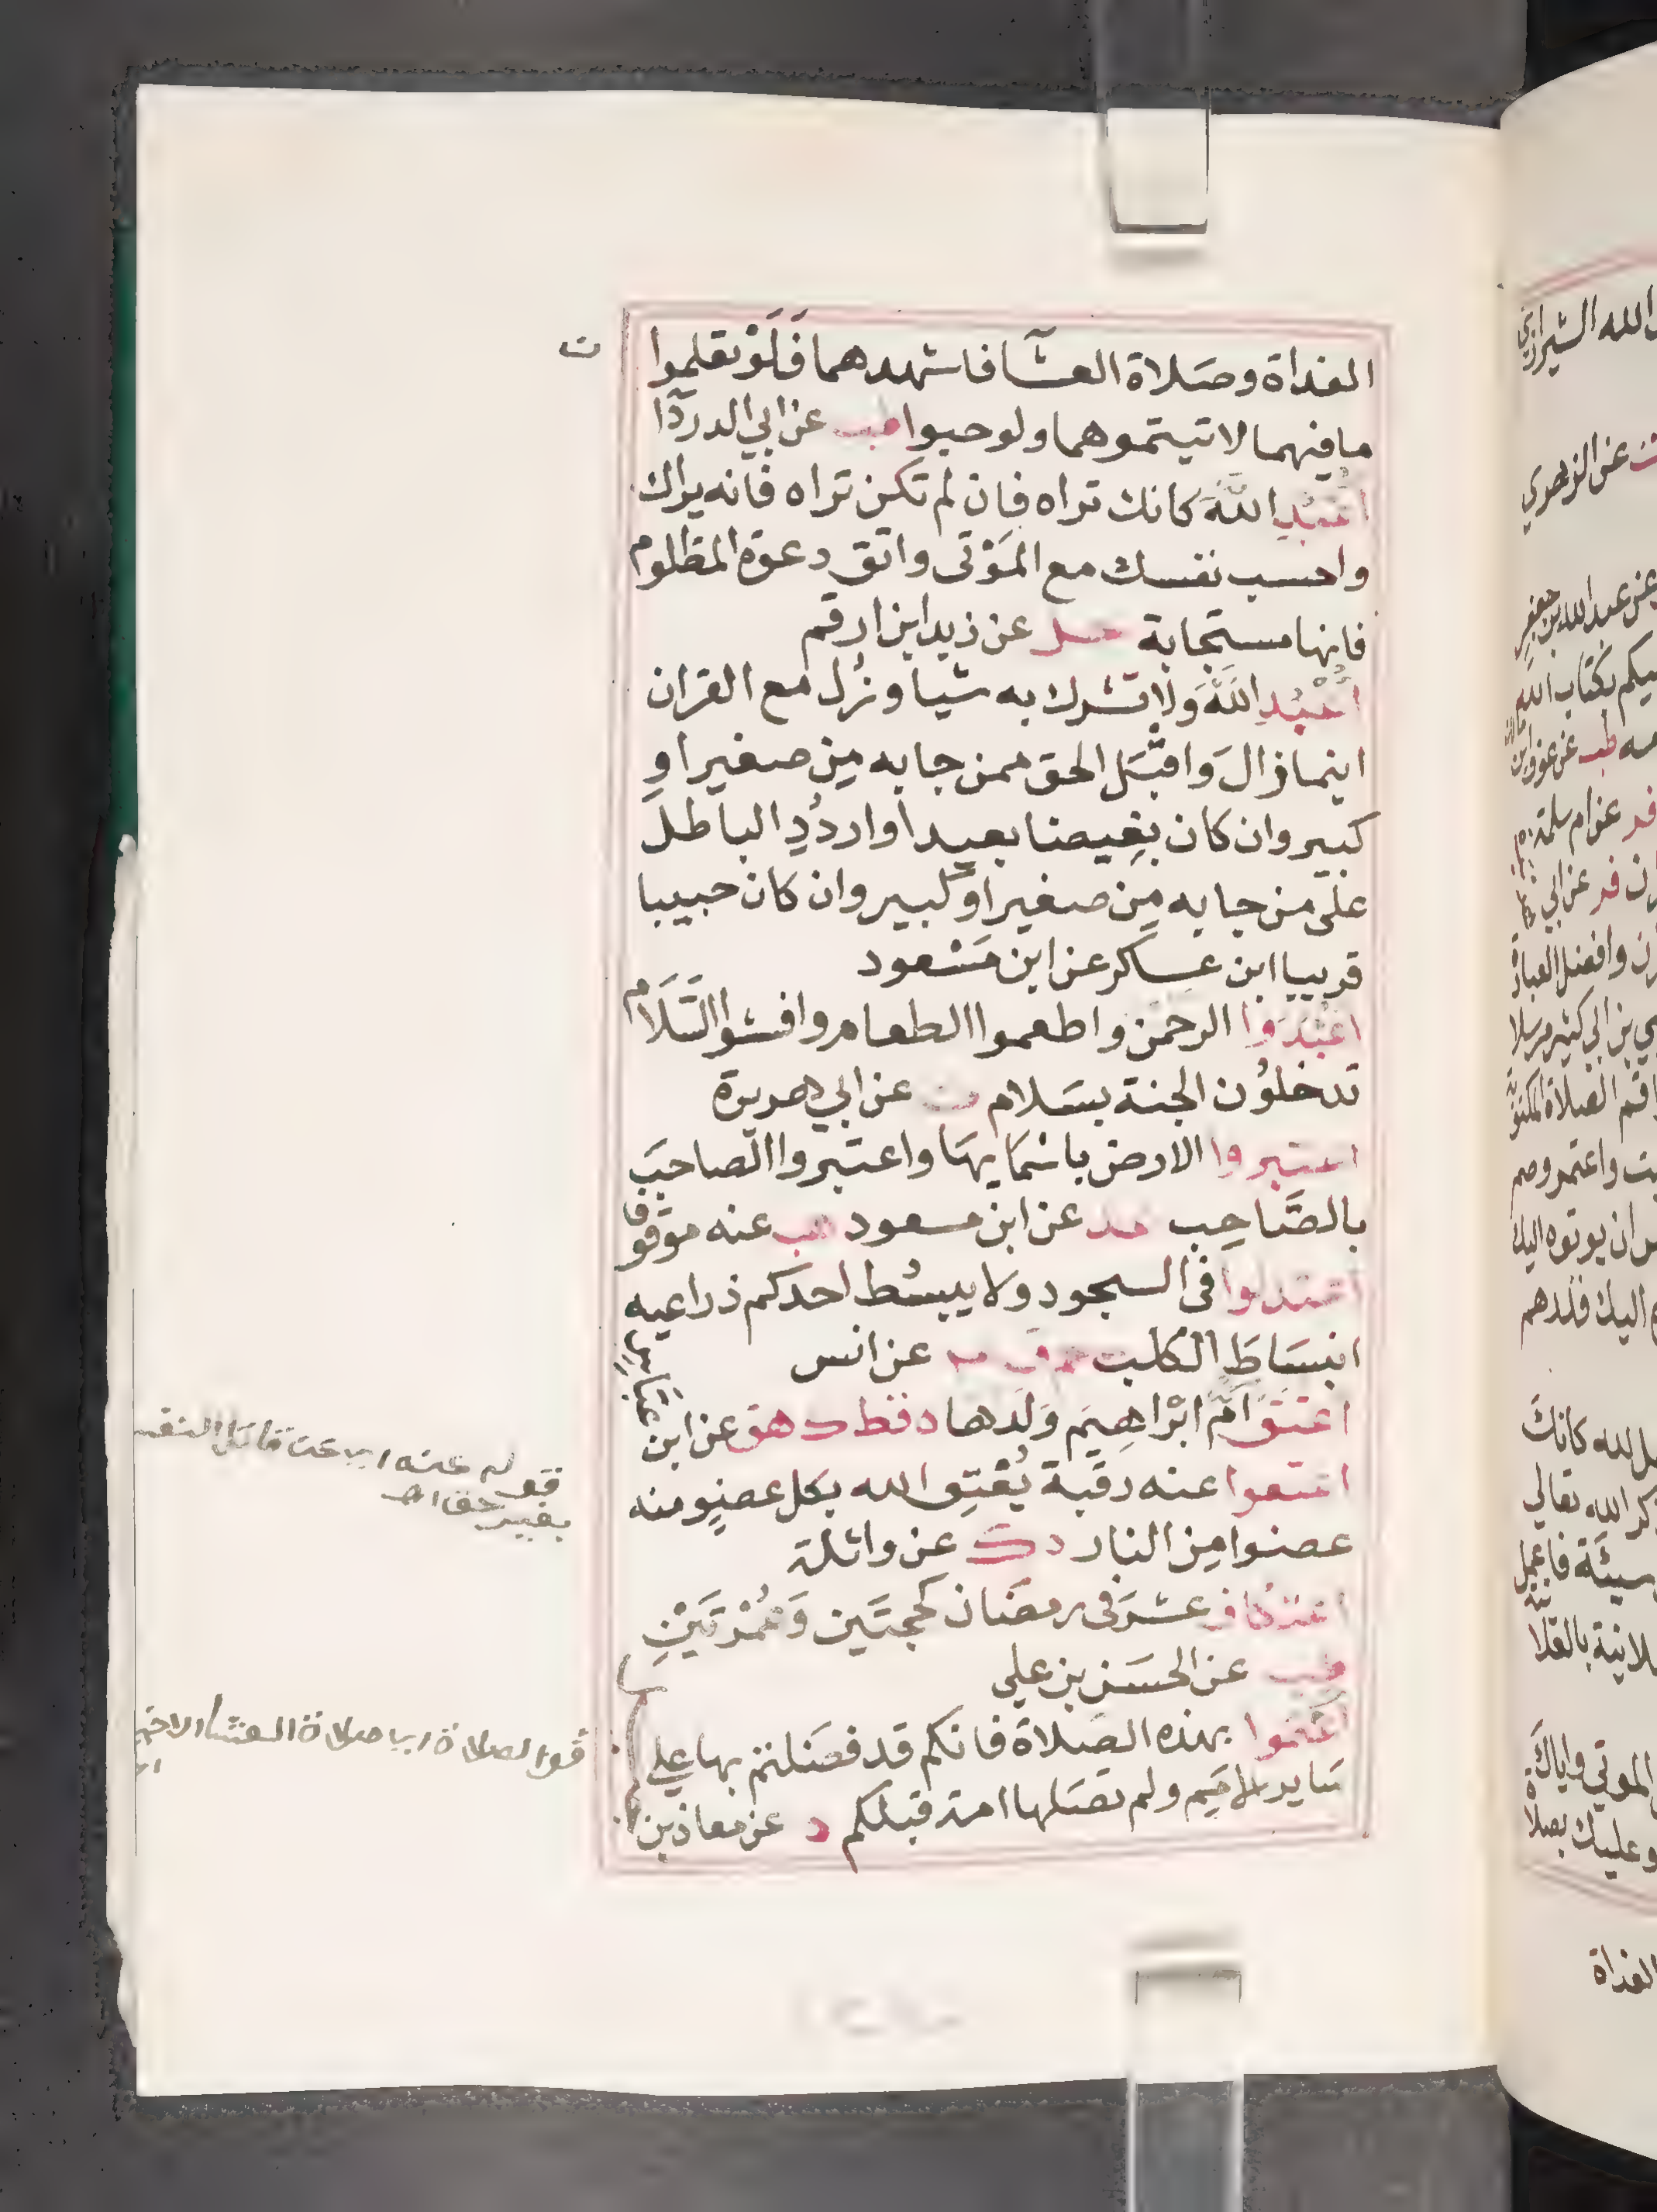 الغداة وصَلاة العشآ فاشهدهما فَلَوْ تعلموا
ن
ما فيهما لاتيتموهما ولو حبوا طب عن ابي الدردآ
اعْبُدِ اللَّهَ كانك تراه فان لم تكن تراه فانه يراك
واحسب نفسك مع المَوْتى واتق دعوة المظلوم
فانها مستجابة حل عن زيد ابن ارقم
اعْبُدِ اللَّهَ وَلَا تشرك به شيا وزُل مع القران
اينما زال وَاقبَل الحق ممن جا به مِن صغير اوِ
كبير وان كان بغِيضا بعيدا واردُدِ الباطل
على من جا به مِن صغير او كبير وان كان حبيبا
قريبا ابن عساكر عن ابن مَسْعود
اعْبُدُوا الرحمن واطعموا الطعام وافشوا السَّلَام
تدخلوُن الجنة بسَلام ت عن ابي هريرة
اعتبروا الارض باسْمَايهَا واعتبروا الصاحبَ
بالصَّاحِب عد عن ابن مسعود هب عنه موقوفا
اعتدلوا في السجود ولا يبسُط احدكم ذراعيه
انبسَاطَ الكلب حم ق عن انس
اعتقَ امَّ ابْراهِيمَ وَلدها ه قط ك هق عن ابن عَبَّاسٍ
اعتقوا عنه رقبة يُعْتِقِ الله بكل عضوٍ منه
عضوا مِن النار د ك عن واثلة
اعتكاف عشرَ في رمضَان كحجتَين وَعُمْرَتَيْنِ
طب عن الحسَن بن علي
اعتموا بهذه الصَلاة فانكم قد فضَلتم بها علي
سَاير الامَمِ ولم تصَلها امة قبلكم د عن معاذ بن
قوله عنه اي عن قاتل النفس
بغير حق اه
قوله الصلاة اي صلاة العشا الاخيرة
اه